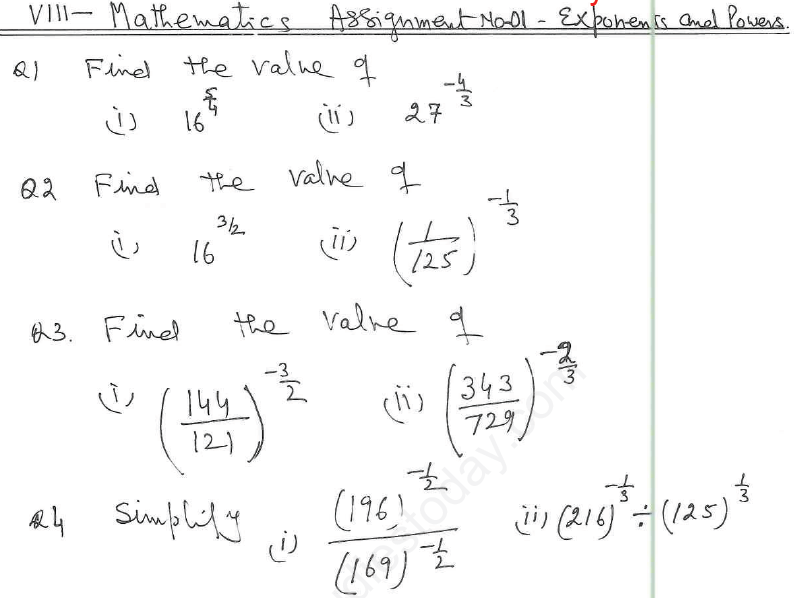 VIII- Mathematics Assignment No-01 - Exponents and Powers.
Q1 Find the value of
(i) 16^(5/4) (ii) 27^(-4/3)
Q2 Find the value of
(i) 16^(3/2) (ii) (1/125)^(-1/3)
Q3. Find the value of
(i) (144/121)^(-3/2) (ii) (343/729)^(-2/3)
Q4 Simplify (i) (196)^(-1/2)/(169)^(-1/2) (ii) (216)^(-1/3) ÷ (125)^(1/3)